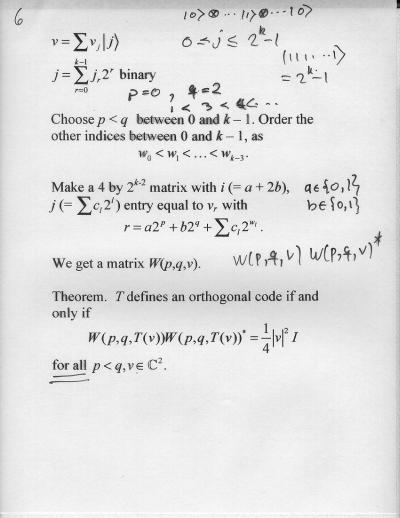 6
|0> ⊗ ... |1> ⊗ ... |0>
v = ∑ v_j |j⟩ 0 ≤ j ≤ 2^k - 1
|111...1>
= 2^k - 1
j = ∑_{r=0}^{k-1} j_r 2^r binary
p=0, q=2
1 < 3 < 4 < ...
Choose p < q between 0 and k – 1. Order the
other indices between 0 and k – 1, as
w_0 < w_1 < ... < w_{k-3}.
Make a 4 by 2^{k-2} matrix with i (= a + 2b), a∈{0,1}
j (= ∑ c_l 2^l) entry equal to v_r with b∈{0,1}
r = a2^p + b2^q + ∑ c_l 2^{w_l}.
We get a matrix W(p,q,v). W(p,q,v) W(p,q,v)*
Theorem. T defines an orthogonal code if and
only if
W(p,q,T(v))W(p,q,T(v))* = 1/4 |v|² I
for all p < q, v ∈ ℂ².